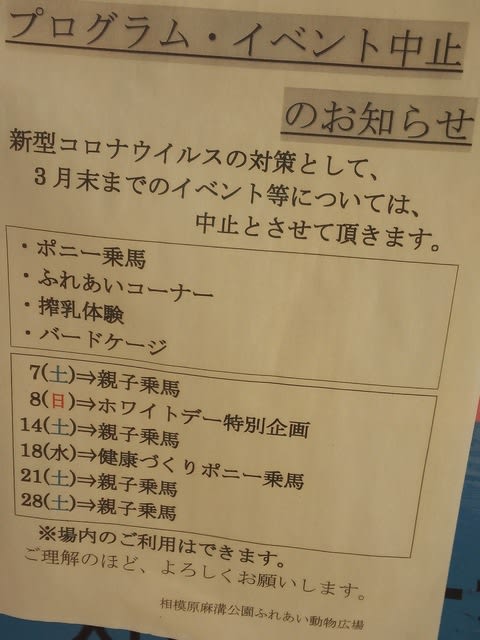 プログラム・イベント中止
のお知らせ
新型コロナウイルスの対策として、
3月末までのイベント等については、
中止とさせて頂きます。
・ポニー乗馬
・ふれあいコーナー
・搾乳体験
・バードケージ
7(土)⇒親子乗馬
8(日)⇒ホワイトデー特別企画
14(土)⇒親子乗馬
18(水)⇒健康づくりポニー乗馬
21(土)⇒親子乗馬
28(土)⇒親子乗馬
※場内のご利用はできます。
ご理解のほど、よろしくお願いします。
相模原麻溝公園ふれあい動物広場